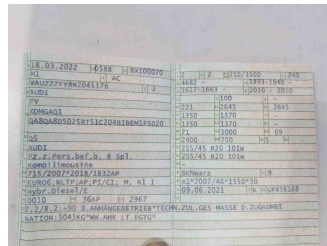 18.03.2022 0588 BXI00070
M1 AC
WAUZZZFY8N2045176 2
AUDI
FY
XDMGAQ1
QA8QA8D5025RT5IC2048IBEM1FSD20
Q5
AUDI
Fz.z.Pers.bef.b. 8 Spl.
Kombilimousine
715/2007*2018/1832AP
EURO6;WLTP;AP;PI/CI; M, N1 I
Hybr.Diesel/E
0010 36AP 2967
2 2 210/3500 240
4682 - 1893-1940 -
1617-1663 2010 - 2010
100 -
221 2645 2645
1350 1370
1350 1370
71 3000 69
2400 750 5
255/45 R20 101W
255/45 R20 101W
Schwarz 9
e1*2007/46*1550*30
09.06.2021 K
7.2/8.2.-90 B.ANHÄNGEBETRIEB*TECHN.ZUL.GES-MASSE D.ZUGKOMBI
NATION:5045KG*WW.AHK LT.EGTG*